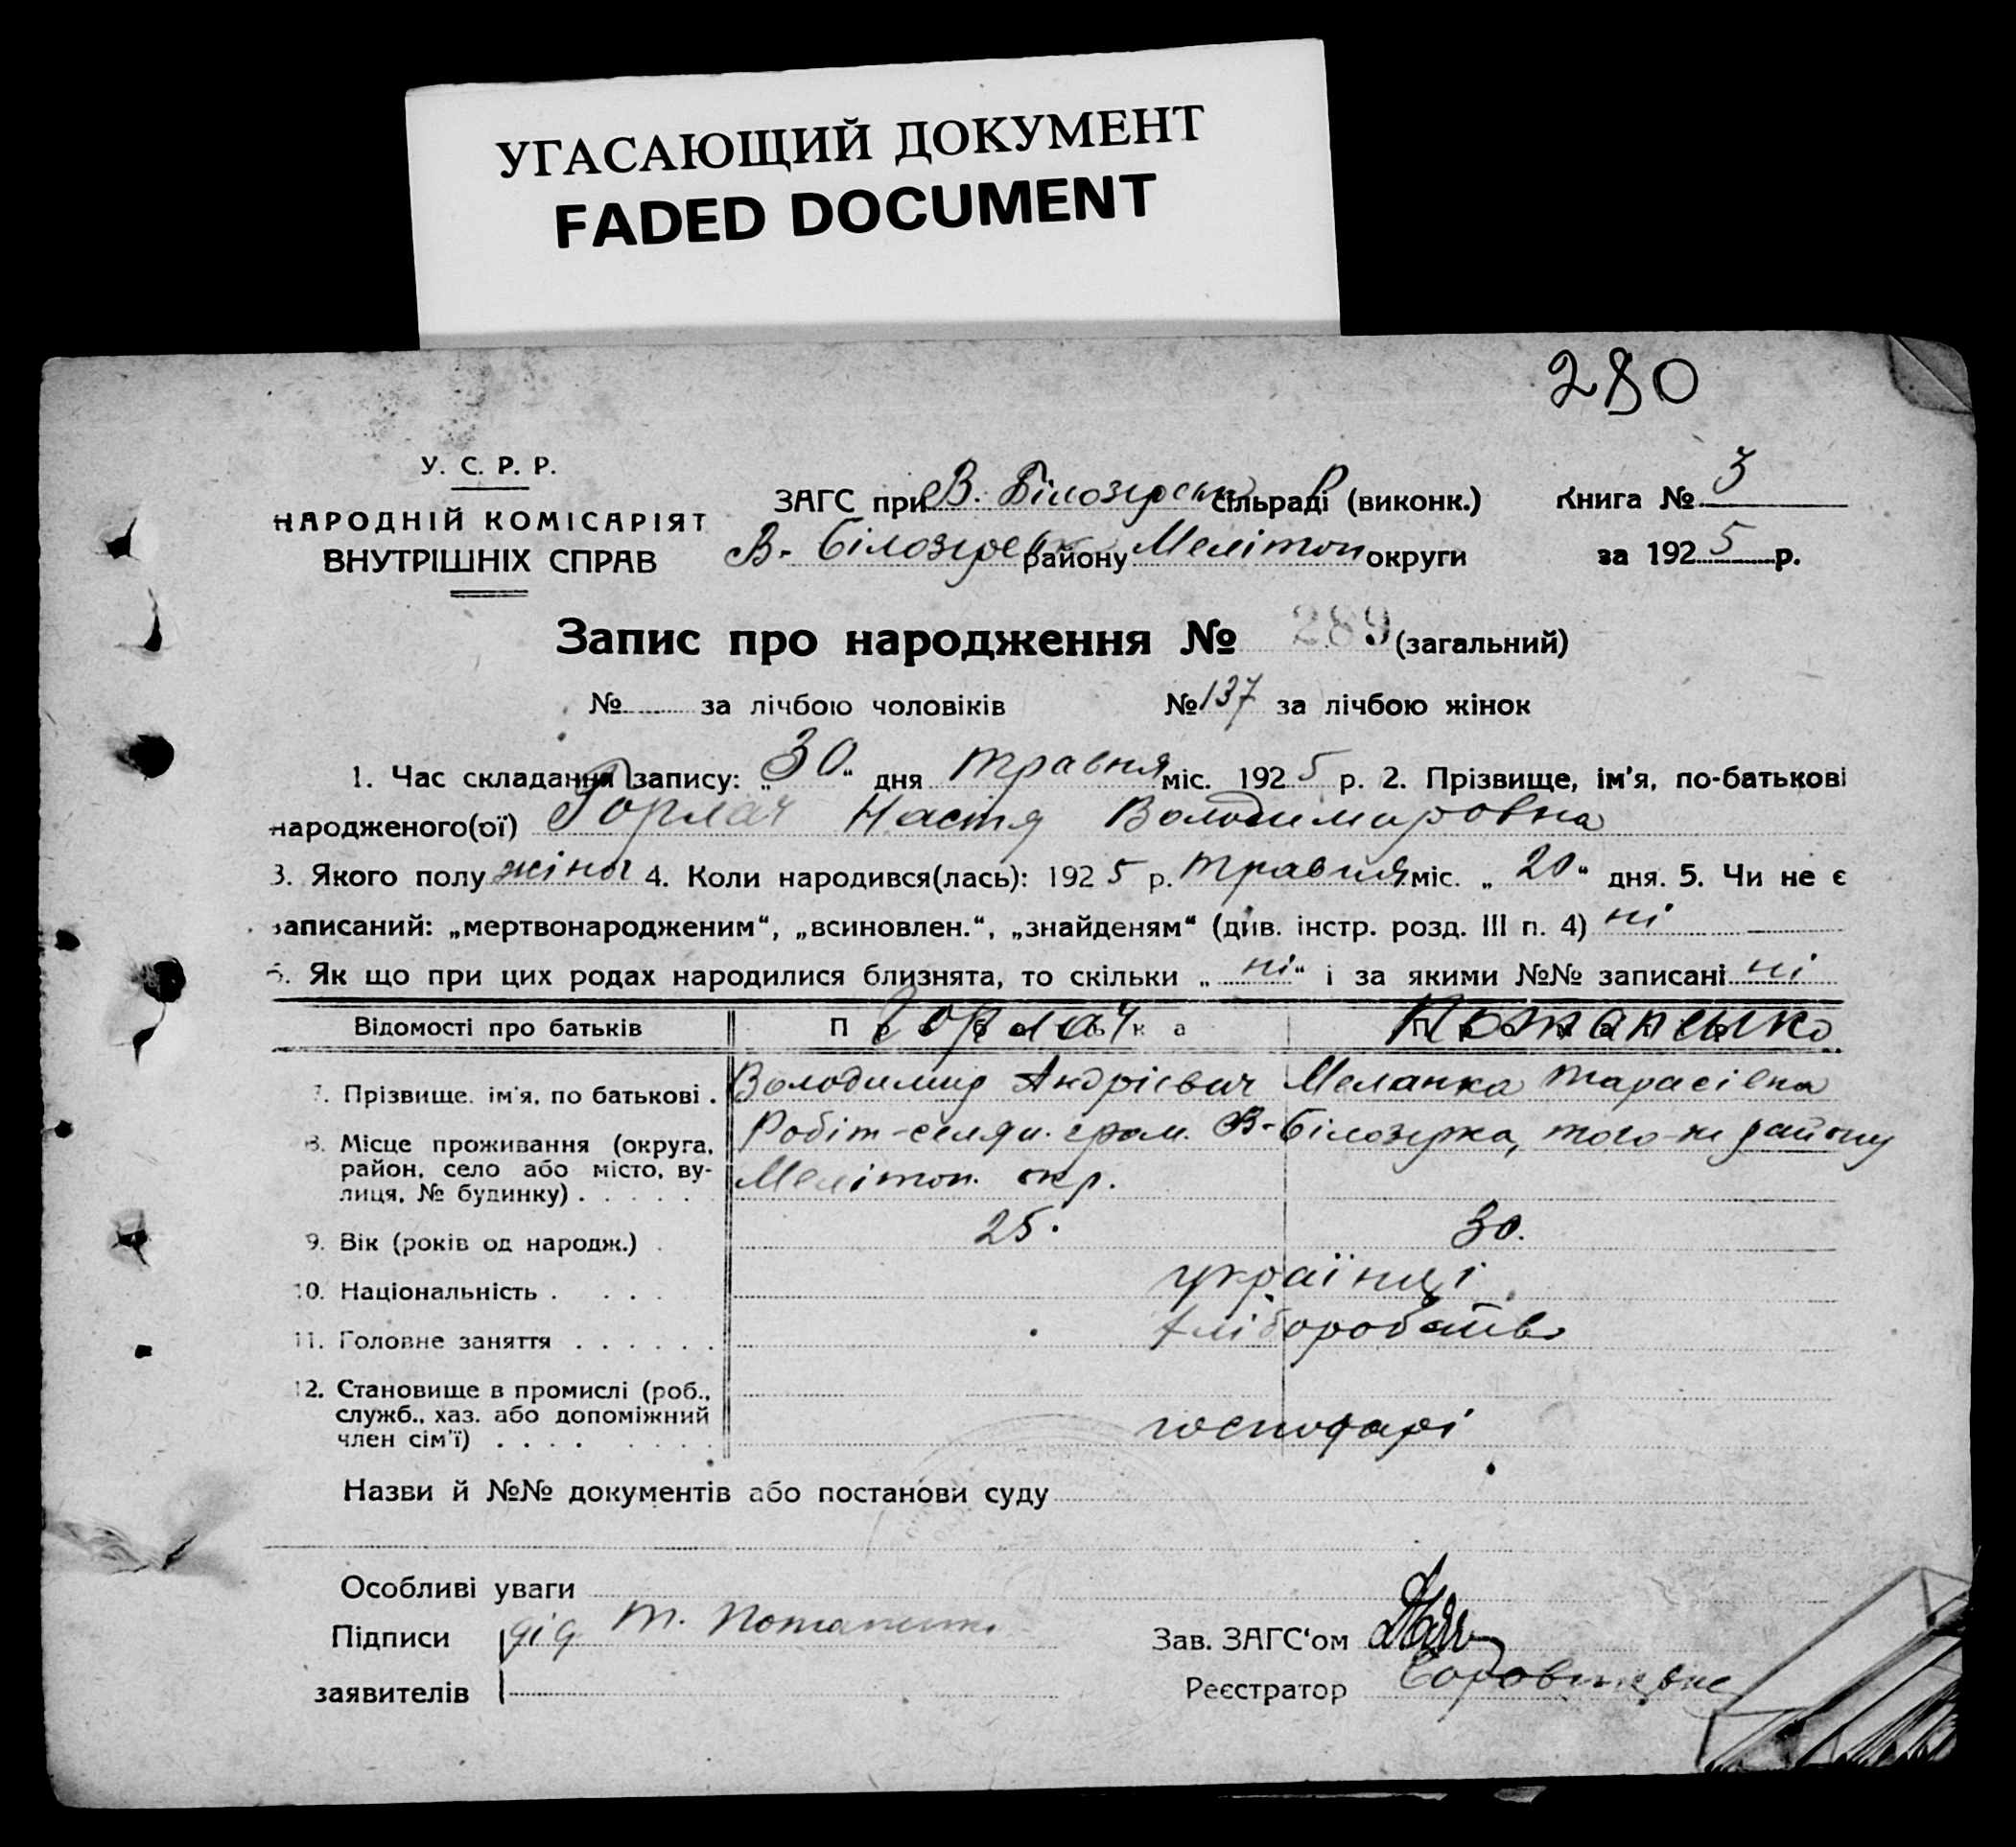 УГАСАЮЩИЙ ДОКУМЕНТ
FADED DOCUMENT
280
У. С. Р. Р.
НАРОДНІЙ КОМІСАРІЯТ
ВНУТРІШНІХ СПРАВ
ЗАГС при В. Білозірськ сільраді (виконк.)
В. Білозірськ району Мелітоп округи
Книга № 3
за 1925 р.
Запис про народження № 289 (загальний)
№ за лічбою чоловіків № 137 за лічбою жінок
1. Час складання запису: „30“ дня травня міс. 1925 р. 2. Прізвище, ім'я, по-батькові
народженого(ої) Горлач Настя Володимировна
3. Якого полу жіноч 4. Коли народився(лась): 1925 р. травня міс. „20“ дня. 5. Чи не є
записаний: „мертвонародженим“, „всиновлен.“, „знайденям“ (див. інстр. розд. III п. 4) ні
6. Як що при цих родах народилися близнята, то скільки „ні“ і за якими №№ записані ні
Відомості про батьків Горлач Потапенко
7. Прізвище, ім'я, по батькові . Володимир Андрієвич Меланка Тарасівна
8. Місце проживання (округа, Робіт-селян. гром. В-Білозірка, того-ж району
район, село або місто, ву- Мелітоп. окр.
лиця, № будинку) . . . . .
9. Вік (років од народж.) . 25. 30.
10. Національність . . . . українці
11. Головне заняття . . . . . . хліборобств
12. Становище в промислі (роб.,
служб., хаз. або допоміжний господарі
член сім'ї) . . . . . . . .
Назви й №№ документів або постанови суду
Особливі уваги
Підписи дід Т. Потапенко
заявителів
Зав. ЗАГС'ом
Реєстратор